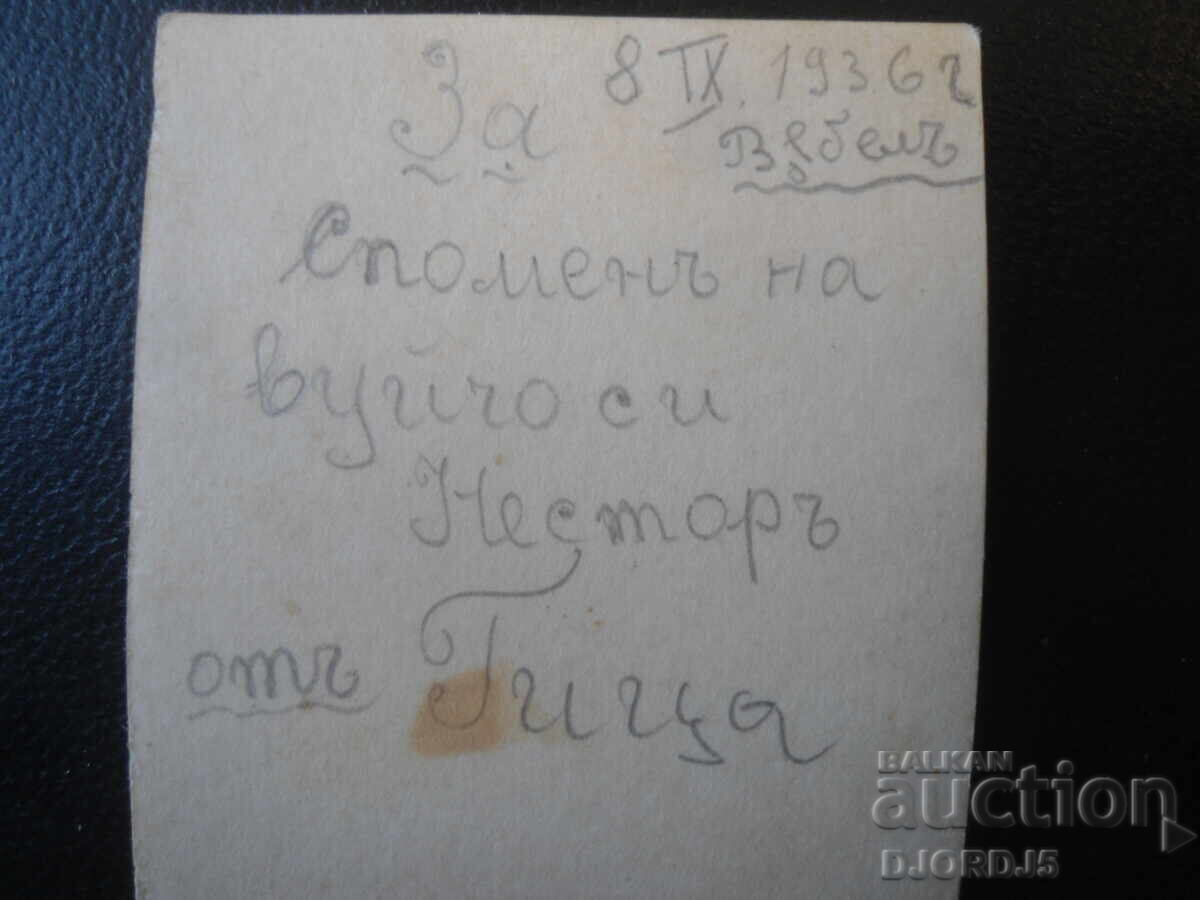 За 8 IX. 1936 г
спомень на
вуйчо си
Несторъ
отъ Гица
BALKAN
auction
DJORDJ5